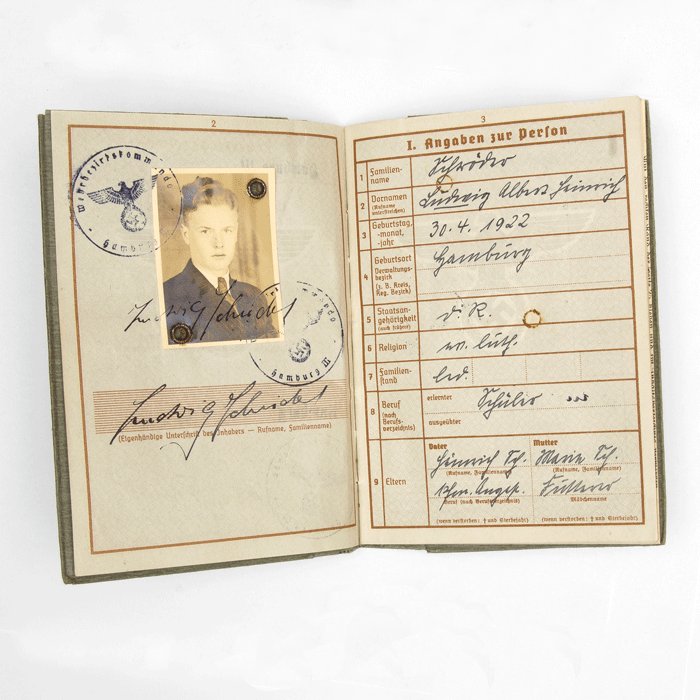 2
Wehrbezirkskommando
Hamburg
Ludwig Schröder
Hamburg III
Ludwig Schröder
(Eigenhändige Unterschrift des Inhabers — Rufname, Familienname)
3
I. Angaben zur Person
1 Familien-
name
Schröder
2 Vornamen
(Rufname
unterstreichen)
Ludwig Albert Heinrich
3 Geburtstag,
-monat,
-jahr
30. 4. 1922
4 Geburtsort
Verwaltungs-
bezirk
(z. B. Kreis,
Reg. Bezirk)
Hamburg
5 Staatsan-
gehörigkeit
(auch frühere)
d. R.
6 Religion
ev. luth.
7 Familien-
stand
led.
8 Beruf
(nach
Berufs-
verzeichnis)
erlernter
Schüler
ausgeübter
9 Eltern
Vater
Heinrich Sch.
(Rufname, Familienname)
kfm. Angest.
Beruf (nach Berufsverzeichnis)
(wenn verstorben: † und Sterbejahr)
Mutter
Marie Sch.
(Rufname, Familienname)
Mädchenname
(wenn verstorben: † und Sterbejahr)